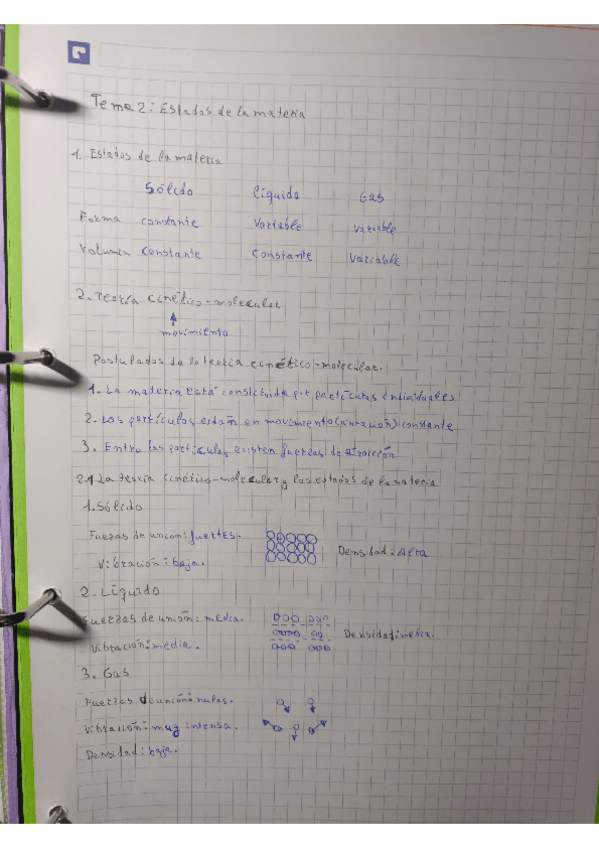 Tema 2: Estados de la materia
1. Estados de la materia
Sólido líquido Gas
Forma constante variable variable
Volumen constante constante variable
2. Teoría cinético-molecular
movimiento
Postulados de la teoria cinético-molecular.
1. La materia está constituida por partículas individuales
2. Las partículas estan en movimiento (vibración) constante
3. Entre las partículas existen fuerzas de atracción
2.1 La teoría cinético-molecular y los estados de la materia
1. Sólido
Fuerzas de union: fuertes.
Densidad: Alta
Vibración: baja.
2. Líquido
Fuerzas de unión: media.
Densidad: media.
Vibración: media.
3. Gas
Fuerzas de unión: nulas.
Vibración: muy intensa.
Densidad: baja.